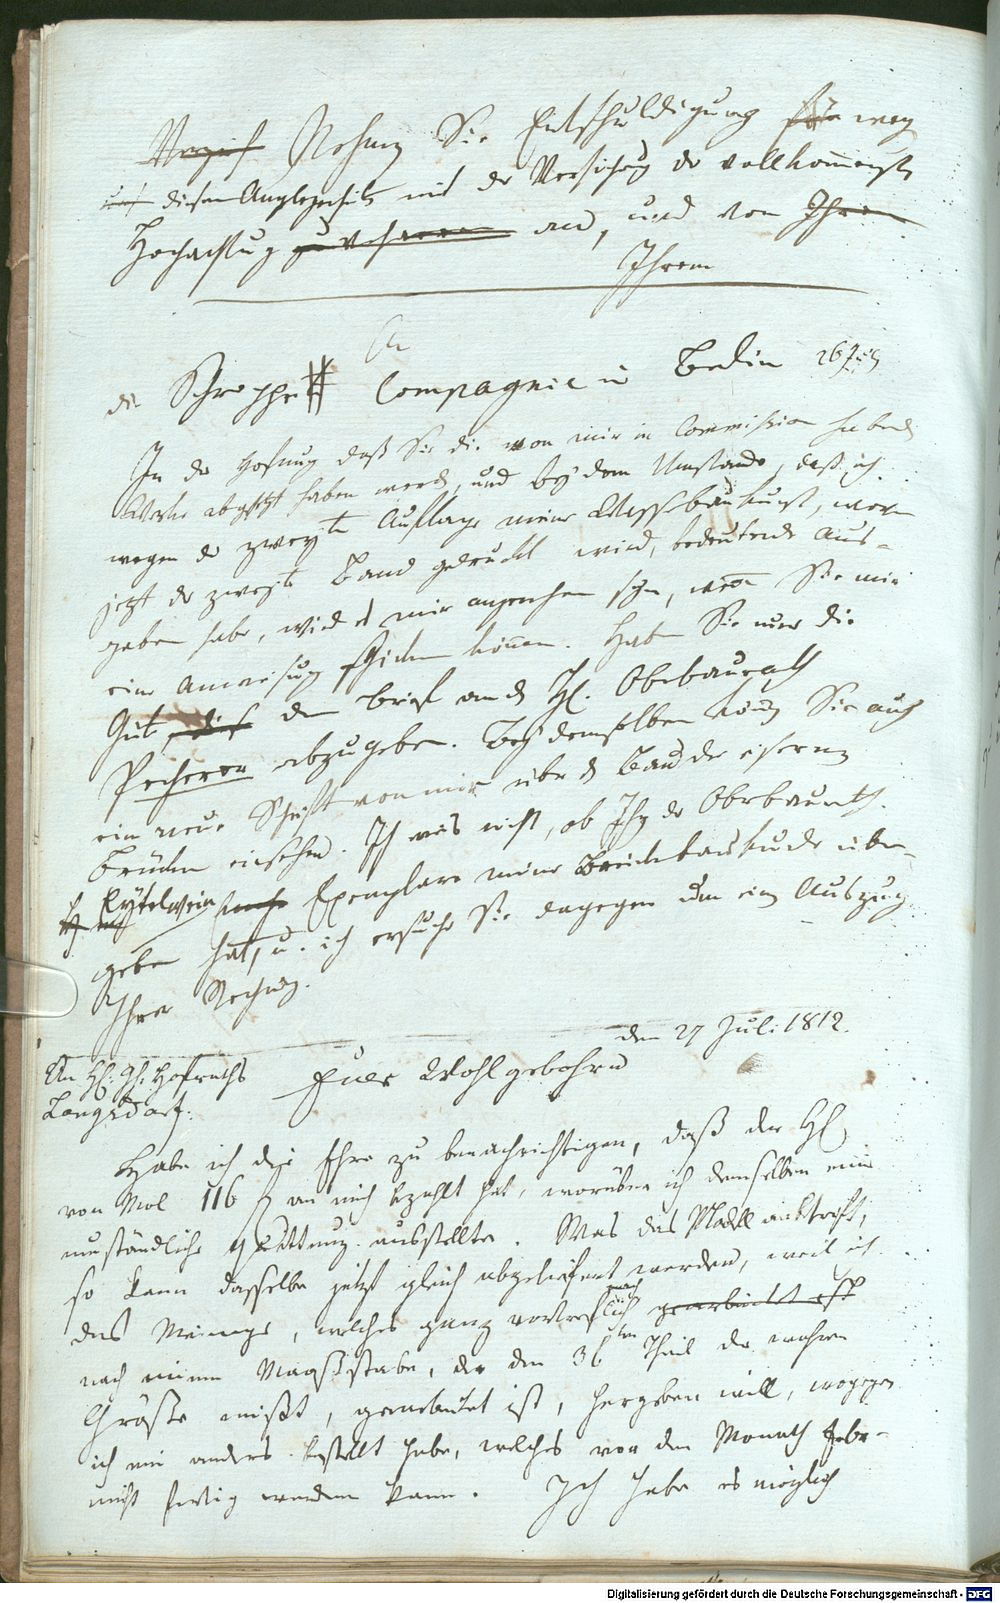 Verzeih Nehmen Sie Entschuldigung für weg
und diesen Angelegenheit mit der Versicherung der vollkommensten
Hochachtung zu verharren an, und von Ihrem
Ihrem
An
die Schroppsche Compagnie in Berlin 26 July
In der Hofnung daß Sie die von mir in Commission habend
Werke abgesetzt haben werden, und bey dem Umstande, daß ich
wegen der zweyten Auflage meiner Wasserbaukunst, wovon
jetzt der zweyte Band gedruckt wird, bedeutende Aus-
gaben habe, wird es mir angenehm seyn, wenn Sie mir
eine Anweisung schicken können. Haben Sie nur die
Güte, den Brief an den H. Oberbaurath
abzugeben. Bey demselben können Sie auch
eine neue Schrift von mir über den Bau der eisernen
Brücken einsehen. Ich weis nicht, ob Ihnen der Oberbaurath
Eytelwein Exemplare meiner Brückenbaukunde über-
geben hat, u. ich ersuche Sie dagegen um einen Auszug
Ihrer Rechnung.
den 27 Juli 1812.
An H. Gh. Hofraths
Langsdorf.
Euer Wohlgebohren
Habe ich die Ehre zu benachrichtigen, daß der H.
von Mol 116 f an mich bezahlt hat, worüber ich demselben eine
umständliche Quittung ausstellte. Was das Modell anbetrift,
so kann dasselbe jetzt gleich abgeliefert werden, weil ich
das Meinige, welches ganz vortreflich gearbeitet ist
nach
nach einem Maasstabe, der den 36ten Theil der wahren
Größe mißt, gearbeitet ist, hergeben will, wogegen
ich ein anders bestellt habe, welches vor dem Monath Febr-
nicht fertig werden kann. Ich habe es möglich
Digitalisierung gefördert durch die Deutsche Forschungsgemeinschaft - DFG